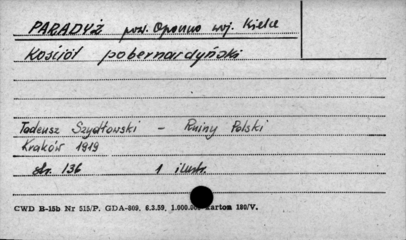 PARADYŻ pow. Opoczno woj. Kielce
Kościół pobernardyński
Tadeusz Szydłowski - Ruiny Polski
Kraków 1919
str. 136 1 ilustr.
CWD B-15b Nr 515/P. GDA-809, 6.3.59, 1.000.00 Karton 180/V.